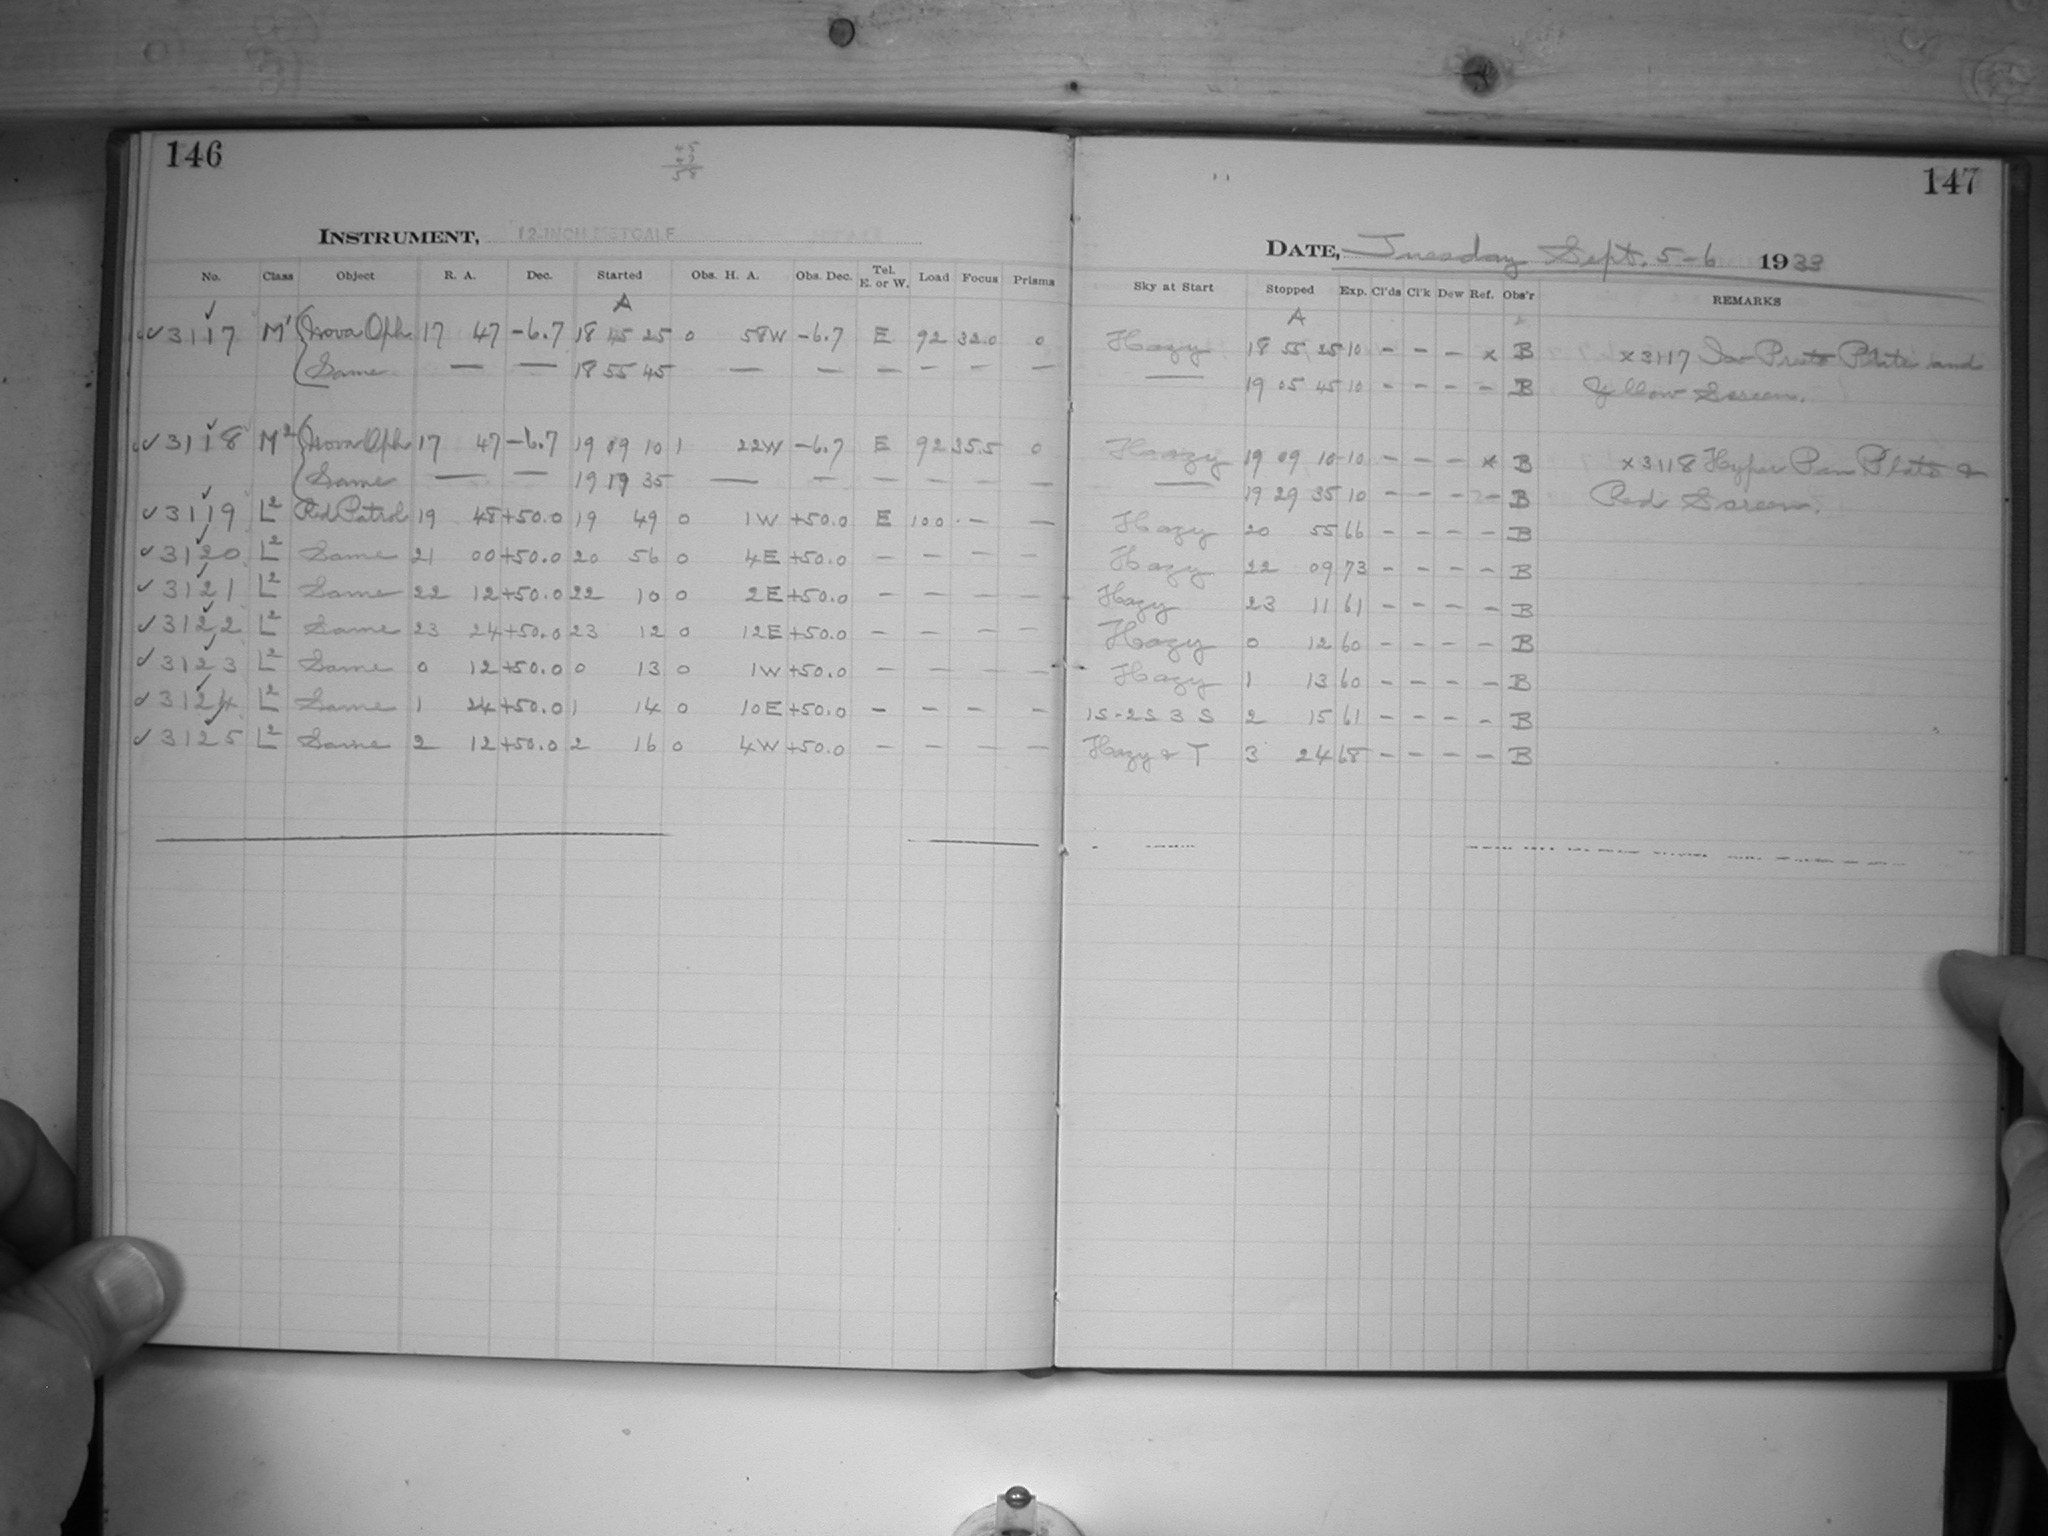 146
45
58
INSTRUMENT, 12-INCH METCALF
No. Class Object R. A. Dec. Started Obs. H. A. Obs. Dec. Tel. E. or W. Load Focus Prisms
A
✓ 3117 M' Nova Oph 17 47 -6.7 18 45 25 0 58W -6.7 E 92 32.0 0
Same — — 18 55 45 — — — — — —
✓ 3118 M² Nova Oph 17 47 -6.7 19 09 10 1 22W -6.7 E 92 35.5 0
Same — — 19 19 35 — — — — — —
✓ 3119 L² Red Patrol 19 48 +50.0 19 49 0 1W +50.0 E 100 — —
✓ 3120 L² Same 21 00 +50.0 20 56 0 4E +50.0 — — — —
✓ 3121 L² Same 22 12 +50.0 22 10 0 2E +50.0 — — — —
✓ 3122 L² Same 23 24 +50.0 23 12 0 12E +50.0 — — — —
✓ 3123 L² Same 0 12 +50.0 0 13 0 1W +50.0 — — — —
✓ 3124 L² Same 1 24 +50.0 1 14 0 10E +50.0 — — — —
✓ 3125 L² Same 2 12 +50.0 2 16 0 4W +50.0 — — — —
147
DATE, Tuesday Sept. 5-6 1933
Sky at Start Stopped Exp. Cl'ds Cl'k Dew Ref. Obs'r REMARKS
A
Hazy 18 55 25 10 - - - x B x 3117 Iso Press Plate and
— 19 05 45 10 - - - - B Yellow Screen.
Hazy 19 09 10 10 - - - x B x 3118 Hyper Pan Plate &
— 19 29 35 10 - - - - B Red Screen.
Hazy 20 55 66 - - - - B
Hazy 22 09 73 - - - - B
Hazy 23 11 61 - - - - B
Hazy 0 12 60 - - - - B
Hazy 1 13 60 - - - - B
1S-2S 3 S 2 15 61 - - - - B
Hazy & T 3 24 68 - - - - B